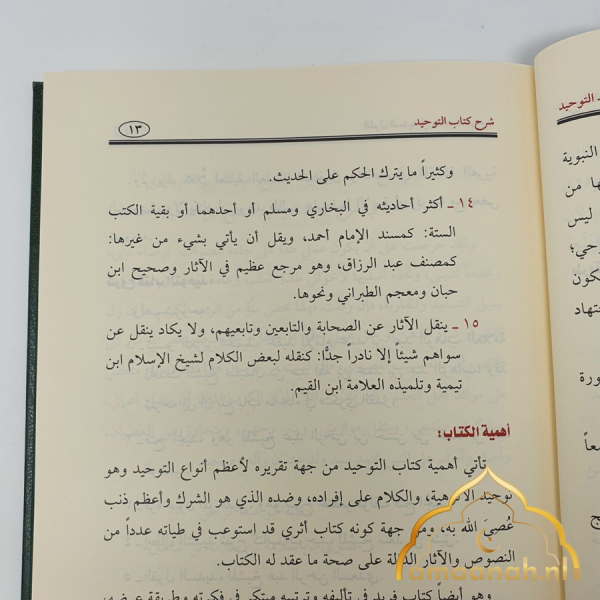 شرح كتاب التوحيد
١٣
وكثيراً ما يترك الحكم على الحديث.
١٤ ـ أكثر أحاديثه في البخاري ومسلم أو أحدهما أو بقية الكتب
الستة: كمسند الإمام أحمد، ويقل أن يأتي بشيء من غيرها:
كمصنف عبد الرزاق، وهو مرجع عظيم في الآثار وصحيح ابن
حبان ومعجم الطبراني ونحوها.
١٥ ـ ينقل الآثار عن الصحابة والتابعين وتابعيهم، ولا يكاد ينقل عن
سواهم شيئاً إلا نادراً جدًّا: كنقله لبعض الكلام لشيخ الإسلام ابن
تيمية وتلميذه العلامة ابن القيم.
أهمية الكتاب:
تأتي أهمية كتاب التوحيد من جهة تقريره لأعظم أنواع التوحيد وهو
توحيد الألوهية، والكلام على إفراده، وضده الذي هو الشرك وأعظم ذنب
عُصيَ الله به، ومن جهة كونه كتاب أثري قد استوعب في طياته عدداً من
النصوص والآثار الدالة على صحة ما عقد له الكتاب.
وهو أيضاً كتاب فريد في تأليفه وترتيبه مبتكر في فكرته وطريقة عرضه،
التوحيد
النبوية
ها من
ليس
وحي؛
كون
تهاد
ورة
معاً
amaanah.nl